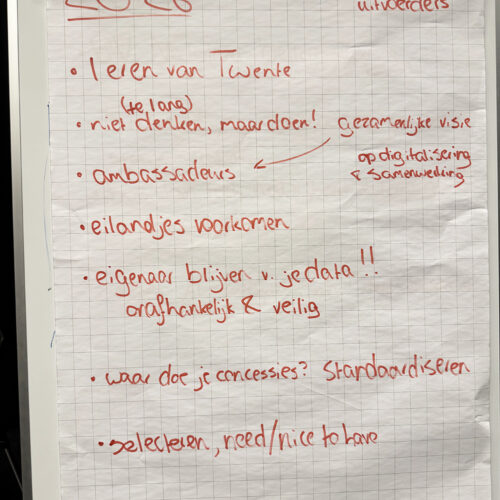 2026
uitvoerders
• leren van Twente
(te lang)
• niet denken, maar doen!
gezamenlijke visie
op digitalisering
& samenwerking
• ambassadeurs
• eilandjes voorkomen
• eigenaar blijven v. je data!!
onafhankelijk & veilig
• waar doe je concessies? Standaardiseren
• selecteren, need/nice to have